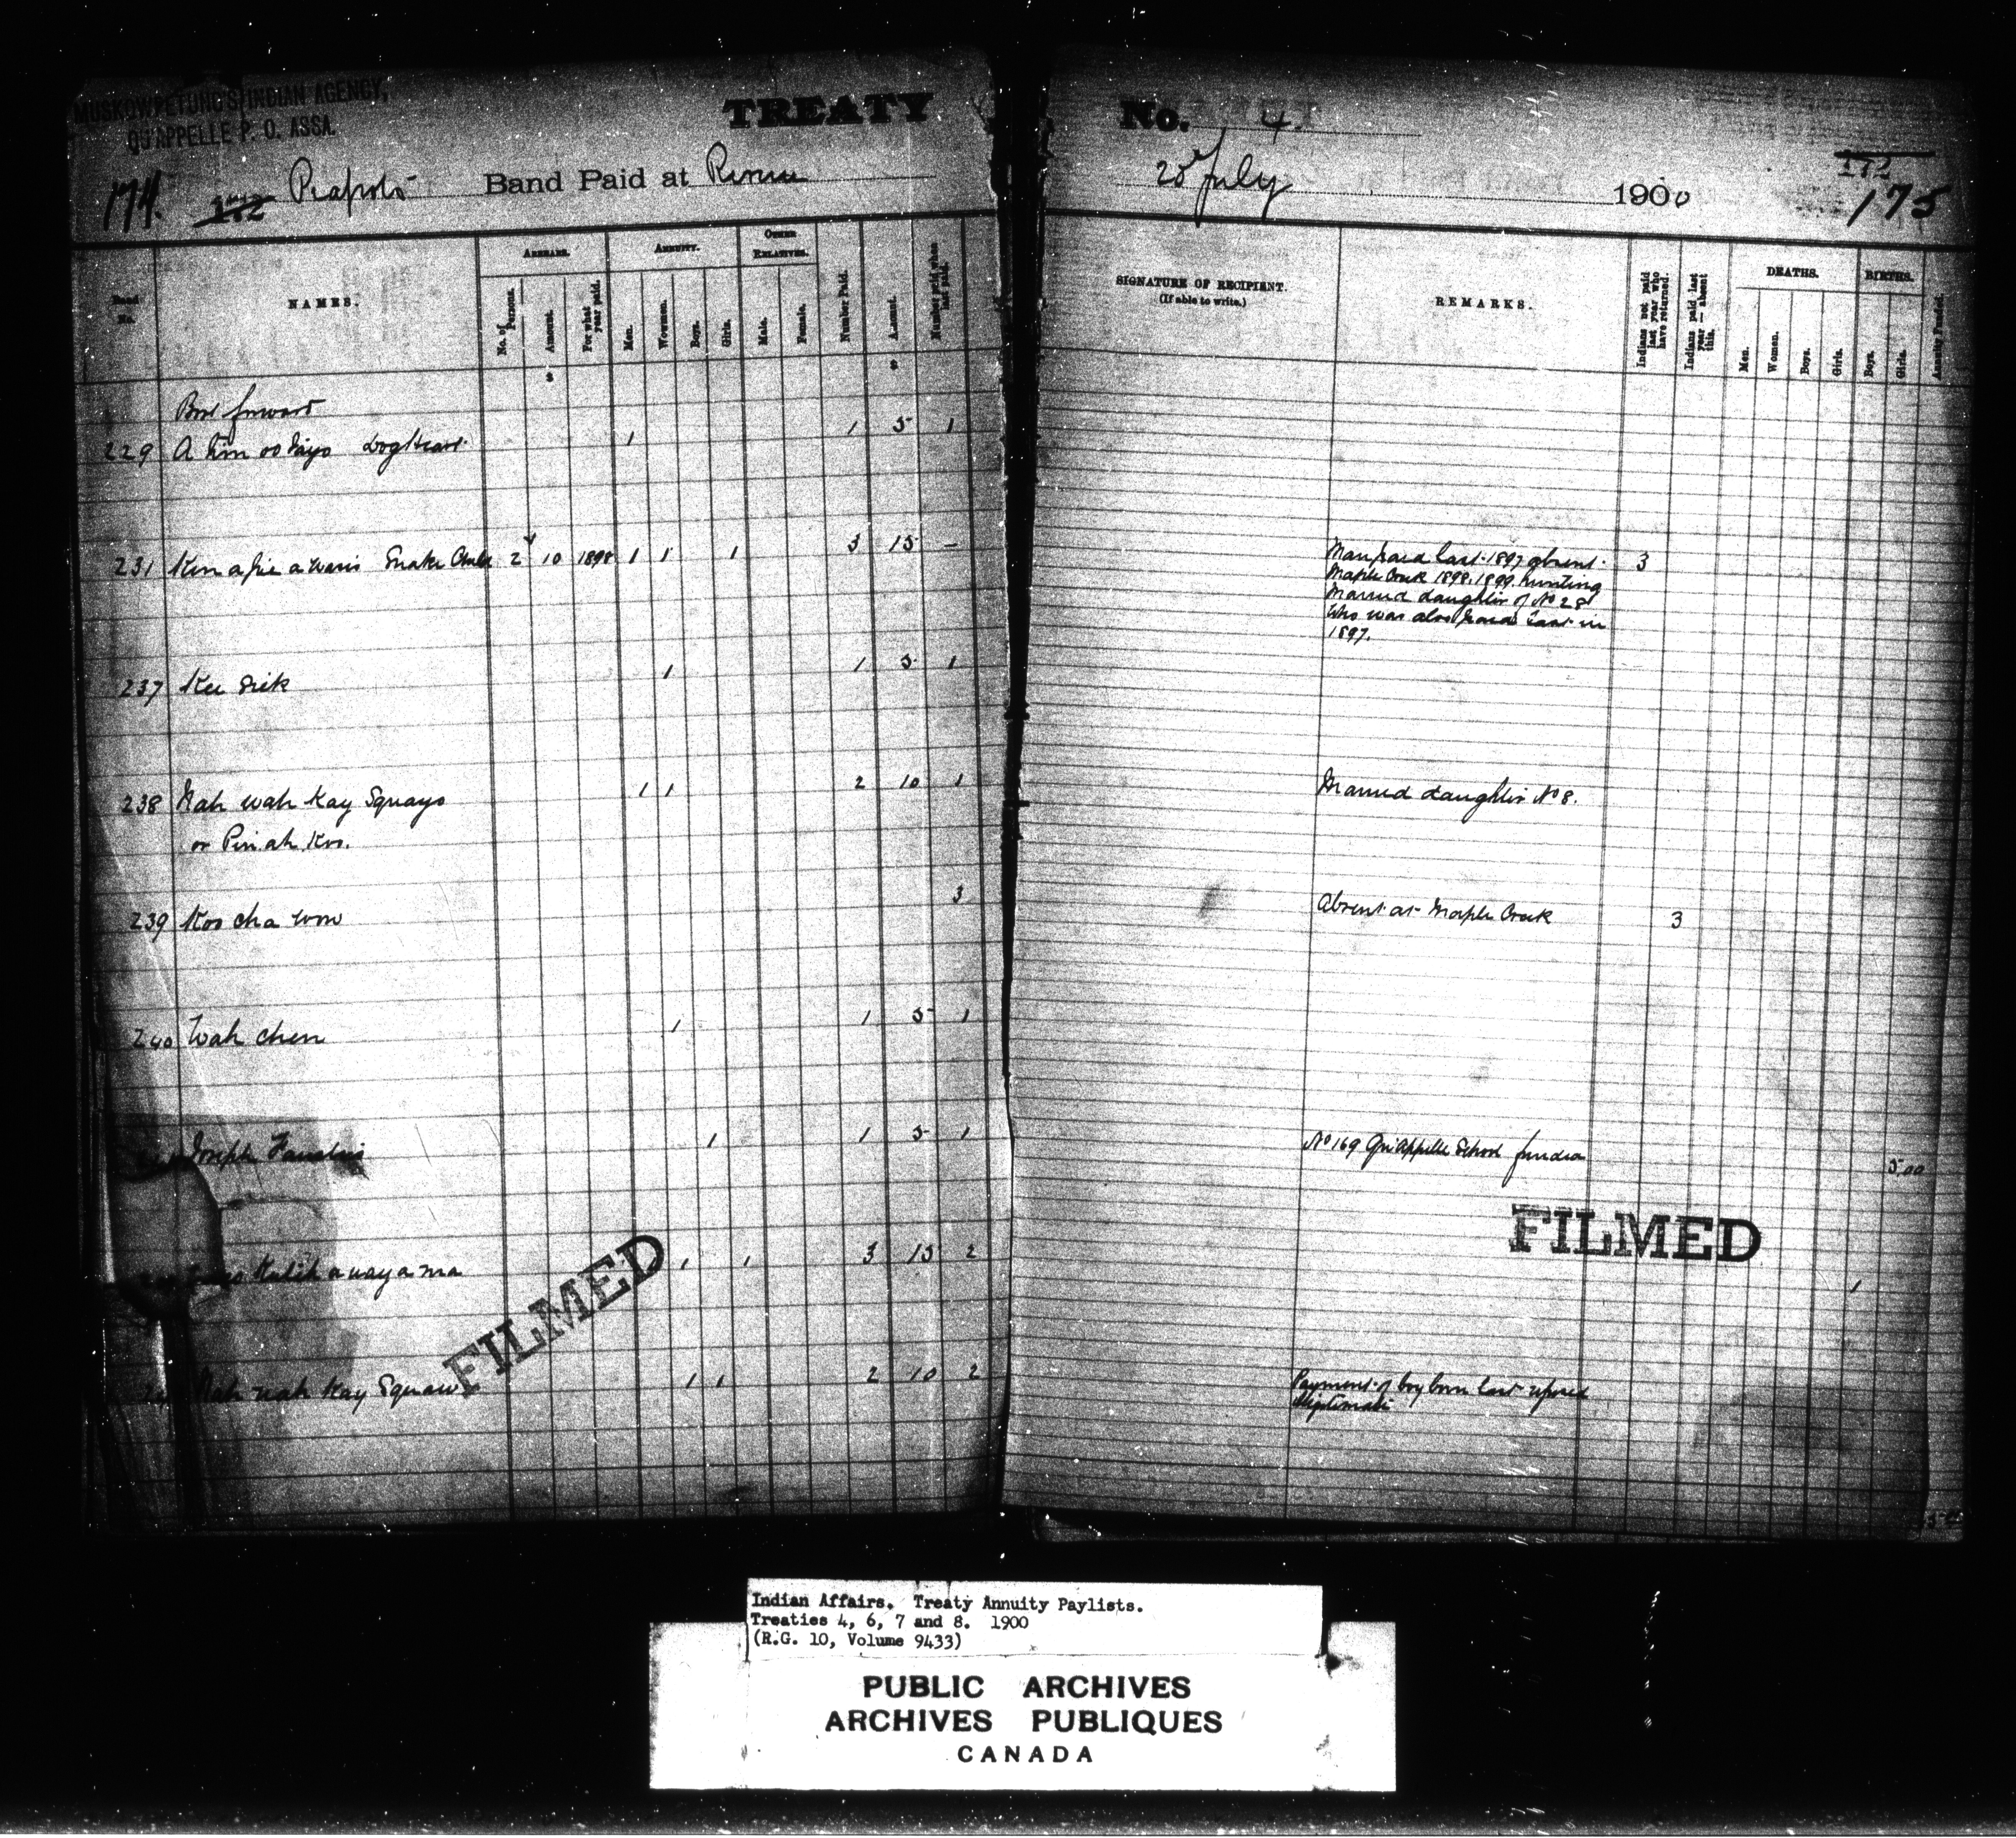 MUSKOWPETUNG'S INDIAN AGENCY,
QU'APPELLE P. O. ASSA.
TREATY
174. 172 Piapots Band Paid at Reserve
Band No.
NAMES.
ARREARS.
No. of Persons.
Amount.
For what year paid.
ANNUITY.
Men.
Women.
Boys.
Girls.
OTHER RELATIVES.
Male.
Female.
Number Paid.
Amount.
Number paid when last paid.
$ $
Brot forward
229 A tim oo tayo Dog Heart 1 1 5 1
231 Ken a pic a wasis Snake Child 2 10 1898 1 1 1 3 15 –
237 Kee sick 1 1 5 1
238 Nah wah kay Squayo 1 1 2 10 1
or Pin ah Koo.
239 Koo cha won 3
240 Wah chen 1 1 5 1
Joseph 1 1 5 1
1 1 3 15 2
Nah wah Kay Squaw 1 1 2 10 2
FILMED
No. 4.
25 July 1900
172
175
SIGNATURE OF RECIPIENT.
(If able to write.)
REMARKS.
Indians not paid last year who have returned.
Indians paid last year — absent this.
DEATHS.
Men.
Women.
Boys.
Girls.
BIRTHS.
Boys.
Girls.
Annuity Funded.
Man paid last 1897 absent 3
Maple Creek 1898, 1899. hunting
Married daughter of No 28
Who was also paid last in
1897.
Married daughter No 8.
Absent at Maple Creek 3
No 169 Qu'Appelle School funded 5.00
FILMED
1
Payment of boy born last refused
illegitimate
Indian Affairs. Treaty Annuity Paylists.
Treaties 4, 6, 7 and 8. 1900
(R.G. 10, Volume 9433)
PUBLIC ARCHIVES
ARCHIVES PUBLIQUES
CANADA